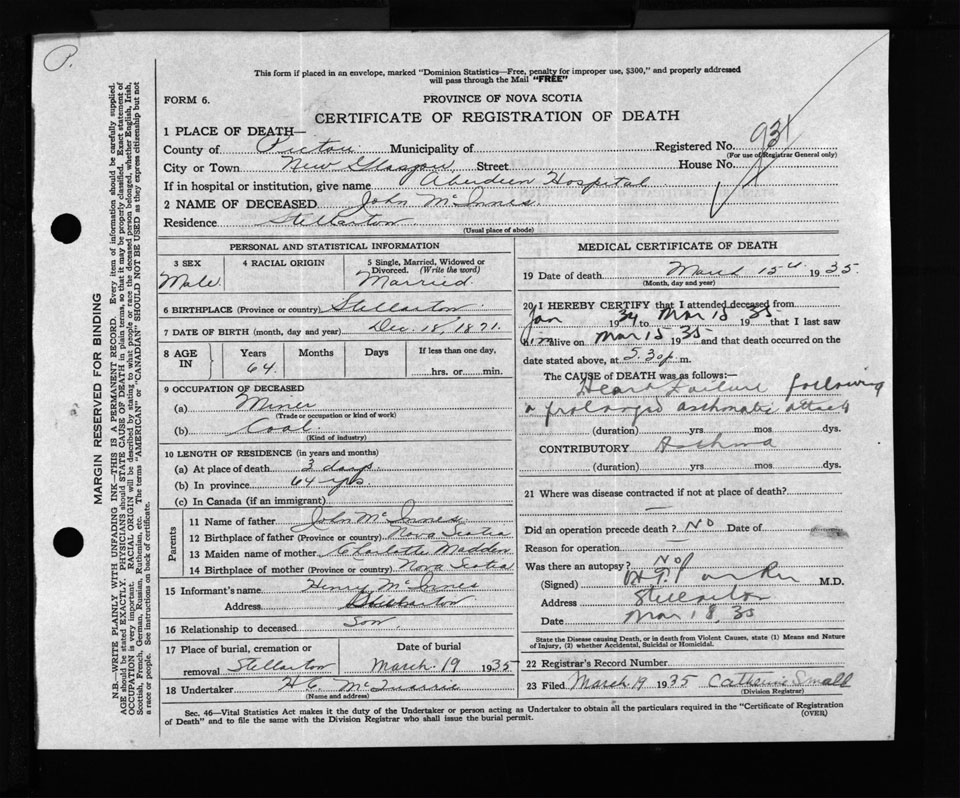 P.
This form if placed in an envelope, marked "Dominion Statistics—Free, penalty for improper use, $300," and properly addressed
will pass through the Mail "FREE"
FORM 6.
PROVINCE OF NOVA SCOTIA
CERTIFICATE OF REGISTRATION OF DEATH
1 PLACE OF DEATH—
County of Pictou Municipality of Registered No. 931
(For use of Registrar General only)
City or Town New Glasgow Street House No.
If in hospital or institution, give name Aberdeen Hospital
2 NAME OF DECEASED John McInnes.
Residence Stellarton
(Usual place of abode)
PERSONAL AND STATISTICAL INFORMATION
3 SEX 4 RACIAL ORIGIN 5 Single, Married, Widowed or
Divorced. (Write the word)
Male Married.
6 BIRTHPLACE (Province or country) Stellarton
7 DATE OF BIRTH (month, day and year) Dec. 18, 1871.
8 AGE IN Years Months Days If less than one day,
64. hrs. or min.
9 OCCUPATION OF DECEASED
(a) Miner
(Trade or occupation or kind of work)
(b) Coal
(Kind of industry)
10 LENGTH OF RESIDENCE (in years and months)
(a) At place of death 3 days
(b) In province 64 yrs.
(c) In Canada (if an immigrant)
Parents
11 Name of father John McInnes
12 Birthplace of father (Province or country) Nova Scotia
13 Maiden name of mother Charlotte Madden
14 Birthplace of mother (Province or country) Nova Scotia
15 Informant's name Henry McInnes
Address Stellarton
16 Relationship to deceased Son
17 Place of burial, cremation or Date of burial
removal Stellarton March. 19 1935
18 Undertaker H C McQuarrie
(Name and address)
MEDICAL CERTIFICATE OF DEATH
19 Date of death March 15th 1935.
(Month, day and year)
20 I HEREBY CERTIFY that I attended deceased from
Jan 1934 to Mar 15 1935 that I last saw
him alive on Mar 15 1935 and that death occurred on the
date stated above, at 5.30 p. m.
The CAUSE of DEATH was as follows:—
Heart Failure following
a prolonged asthmatic attack
(duration) yrs mos dys.
CONTRIBUTORY Asthma
(duration) yrs mos dys.
21 Where was disease contracted if not at place of death?
—
Did an operation precede death? No Date of
Reason for operation —
Was there an autopsy? No
(Signed) M.D.
Address Stellarton
Date Mar 18, 35
State the Disease causing Death, or in death from Violent Causes, state (1) Means and Nature
of Injury, (2) whether Accidental, Suicidal or Homicidal.
22 Registrar's Record Number
23 Filed March 19 1935 Catherine Small
(Division Registrar)
Sec. 46—Vital Statistics Act makes it the duty of the Undertaker or person acting as Undertaker to obtain all the particulars required in the "Certificate of Registration
of Death" and to file the same with the Division Registrar who shall issue the burial permit.
(OVER)
MARGIN RESERVED FOR BINDING
N.B.—WRITE PLAINLY WITH UNFADING INK—THIS IS A PERMANENT RECORD. Every item of information should be carefully supplied.
AGE should be stated EXACTLY. PHYSICIANS should STATE CAUSE OF DEATH in plain terms, so that it may be properly classified. Exact statement of
OCCUPATION is very important. RACIAL ORIGIN will be described by stating to what people or race the deceased person belonged, whether English, Irish,
Scottish, French, German, Russian, Ruthenian, etc. The terms "AMERICAN" or "CANADIAN" SHOULD NOT BE USED as they express citizenship but not
a race or people. See instructions on back of certificate.